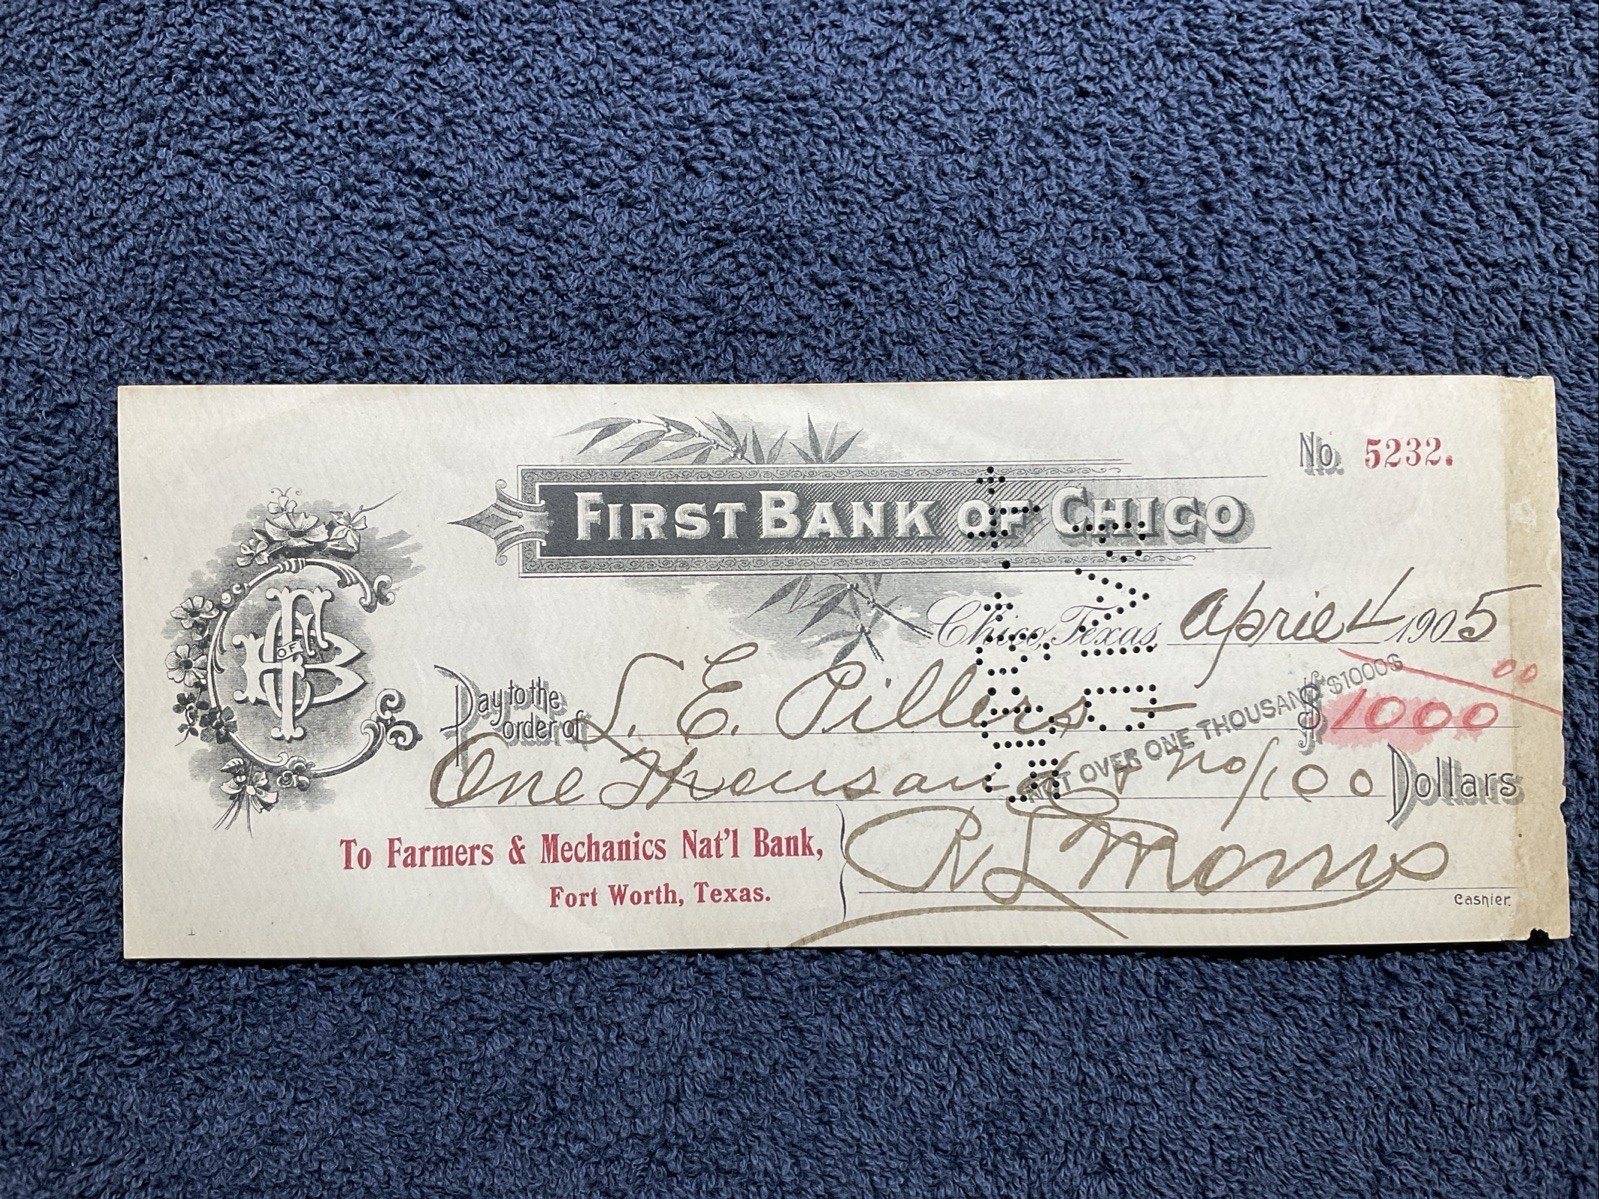 No. 5232.
FIRST BANK OF CHICO
Chico, Texas, April 4 1905
F OF B C
Pay to the order of S. E. Pillers — $1000 00
NOT OVER ONE THOUSAND $1000$
One Thousand & no/100 Dollars
To Farmers & Mechanics Nat'l Bank,
Fort Worth, Texas.
R L Morris
Cashier.